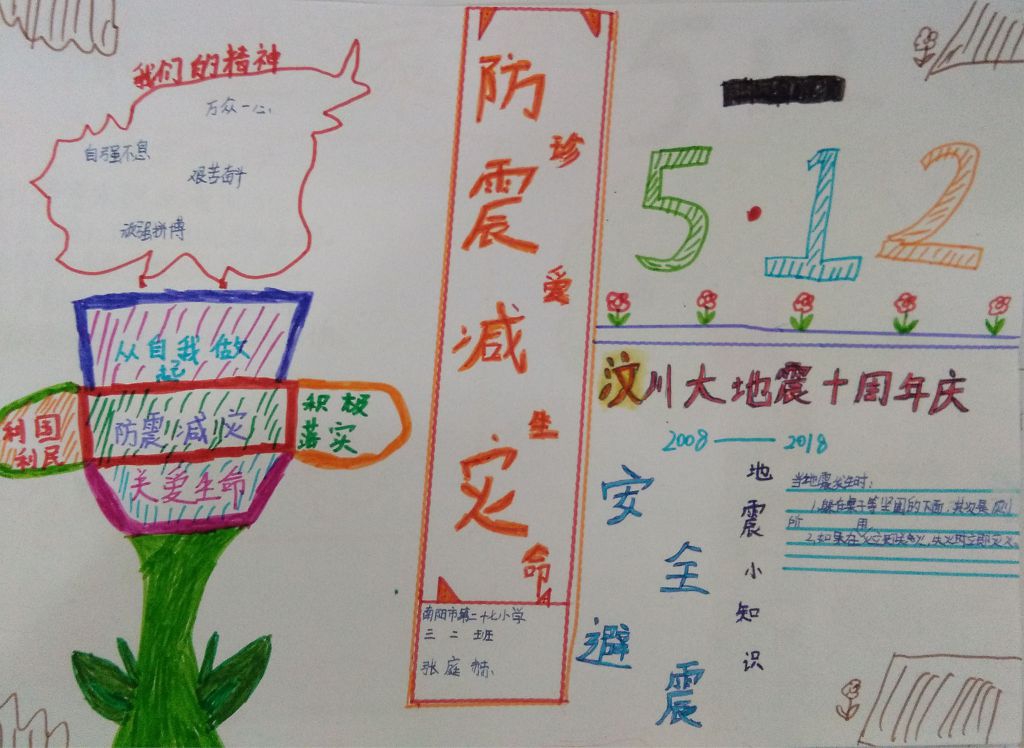 我们的精神
万众一心
自强不息
艰苦奋斗
顽强拼搏
从自我做
起
利国
利民
防震减灾
积极
落实
关爱生命
防震减灾
珍爱生命
南阳市第二十七小学
三二班
张庭
5·12
汶川大地震十周年庆
2008——2018
安全避震
地震小知识
当地震发生时:
1.躲在桌子等坚固的下面,其次是
所用
2.如果在